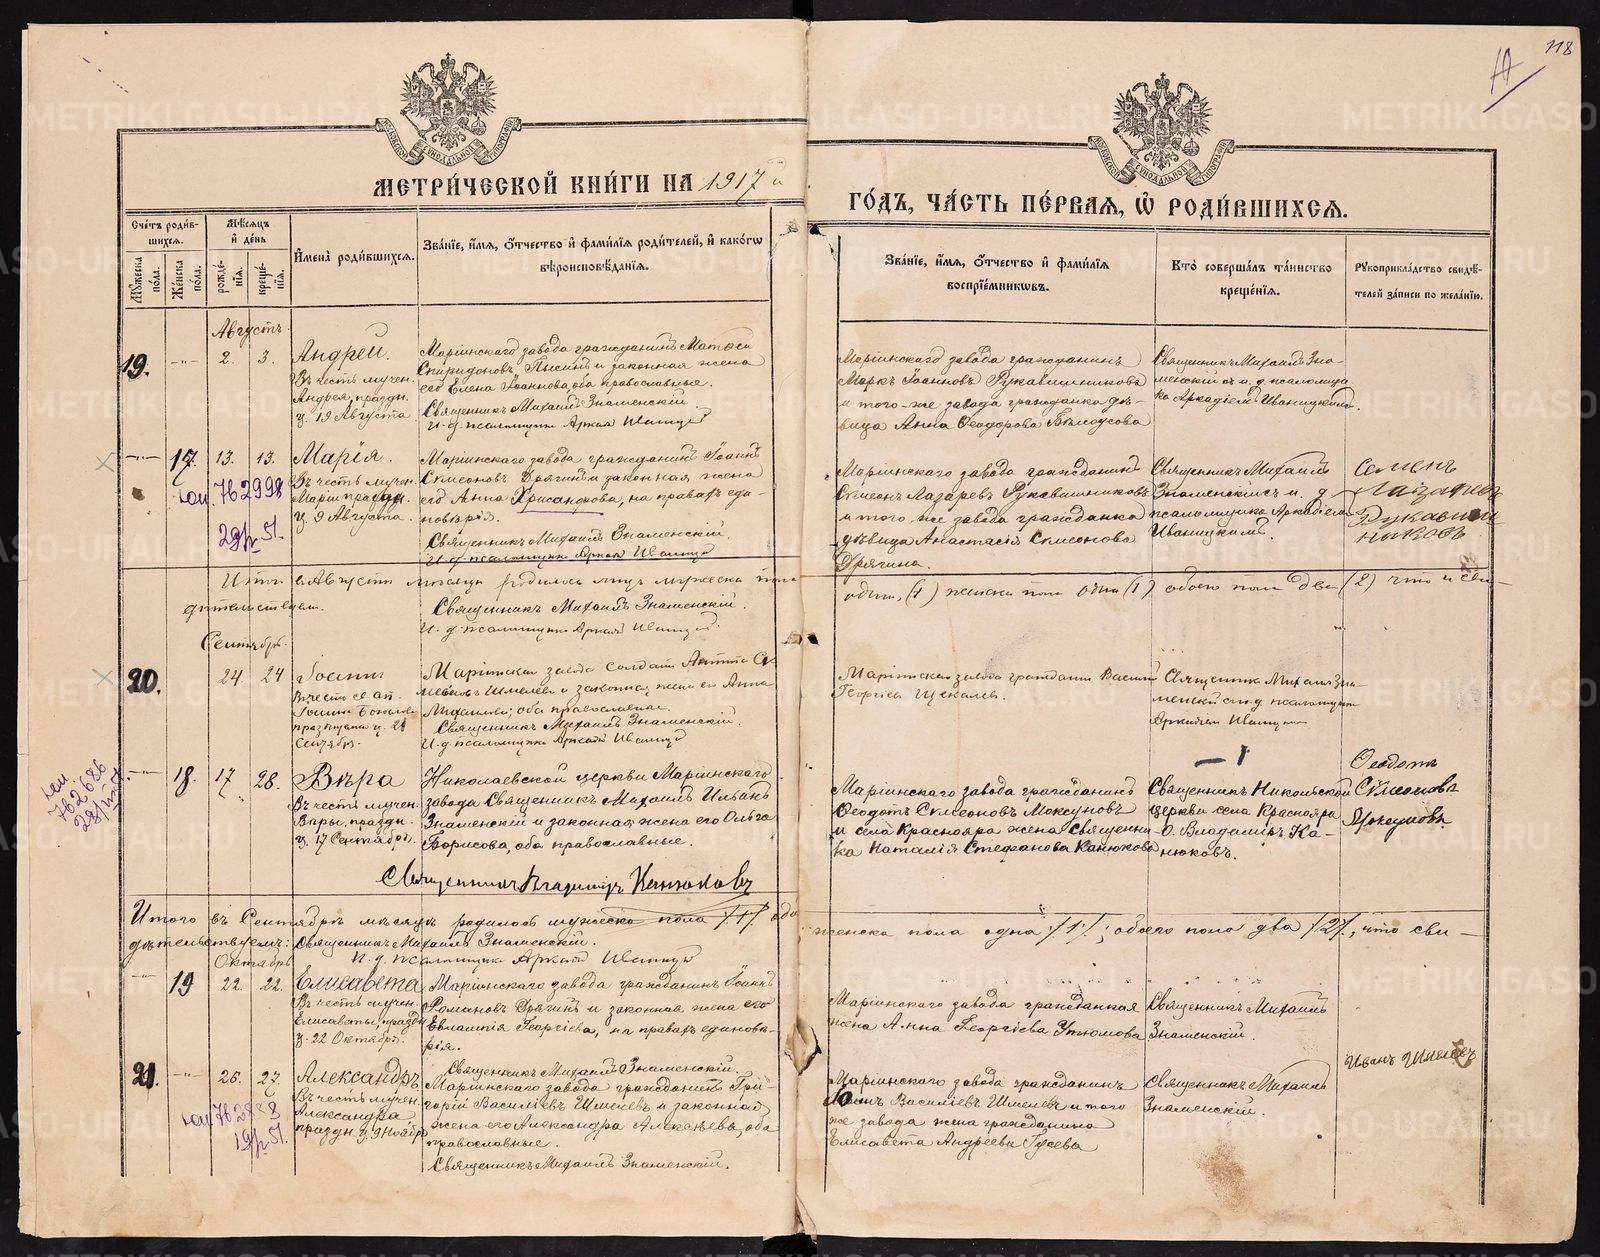 118
МЕТРИ́ЧЕСКОЙ КНИ́ГИ НА 1917 й
ГО́ДЪ, ЧА́СТЬ ПЕ́РВАЯ, Ѡ РОДИ́ВШИХСЯ.
Сче́тъ роди́в-
шихся.
Мѣсяцъ
и҆ де́нь
Му́жеска
по́ла.
Же́нска
по́ла.
рожде́-
нія.
креще́-
нія.
И҆мена̀ роди́вшихся.
Зва́нїе, и҆́мя, ѻ҆́тчество и҆ фами́лїя роди́телей, и҆ како́гѡ
вѣроисповѣ́данїя.
Зва́нїе, и҆́мя, ѻ҆́тчество и҆ фами́лїя
воспрїе́мникѡвъ.
Кто̀ соверша́лъ та́инство
креще́нїя.
Рꙋкоприкла́дство свидѣ́-
телей за́писи по жела́нїю.
Августъ.
19.
2. 3.
Андрей.
Въ честь мучен.
Андрея, праздн.
ц. 19 Августа
Маріинскаго завода гражданинъ Матвей
Спиридоновъ и законная жена
его Елена Іоаннова, оба православные.
Священникъ Михаилъ Знаменскій
И. д. псаломщика Аркадій Иваницкій
Маріинскаго завода гражданинъ
Маркъ Іоанновъ Рукавишниковъ
и того-же завода гражданка дѣ-
вица Анна Ѳеодорова Бѣлоусова
Священникъ Михаилъ Зна-
менскій съ и. д. псаломщи-
ка Аркадіемъ Иваницкимъ.
17. 13. 13.
Марія.
Въ честь мучен.
Маріи праздн.
ц. 9 Августа.
762998
Маріинскаго завода гражданинъ Іоаннъ
Симеоновъ Дрягинъ и законная жена
его Анна Хрисанфова, на правахъ еди-
новѣрія.
Священникъ Михаилъ Знаменскій.
И. д. псаломщика Аркадій Иваницкій
Маріинскаго завода гражданинъ
Симеонъ Лазаревъ Рукавишниковъ
и того же завода гражданка
дѣвица Анастасія Симеонова
Дрягина.
Священникъ Михаилъ
Знаменскій съ и. д.
псаломщика Аркадіемъ
Иваницкимъ.
Семенъ
Лазаревъ
Рукавиш
никовъ
Итого въ Августѣ мѣсяцѣ родилось лицъ мужеска пола
одинъ (1) женска пола одна (1) обоего пола два (2) что и сви-
дѣтельствуемъ.
Священникъ Михаилъ Знаменскій.
И. д. псаломщика Аркадій Иваницкій.
Сентябрь.
20.
24 24
Іоаннъ
Въ честь св. ап.
Іоанна Богослова
празднуемаго ц. 26
Сентябр.
Маріинскаго завода солдатъ
Шмелевъ и законная жена его Анна
Михаилова; оба православные.
Священникъ Михаилъ Знаменскій.
И. д. псаломщика Аркадій Иваницкій
Маріинскаго завода гражданинъ Василій
Георгіевъ Щекалевъ.
Священникъ Михаилъ Зна-
менскій съ и. д. псаломщика
Аркадіемъ Иваницкимъ
762686
18. 17 28.
Вѣра
Въ честь мучен.
Вѣры, праздн.
ц. 17 Сентября.
Николаевской церкви Маріинскаго
завода Священникъ Михаилъ Ильинъ
Знаменскій и законная жена его Ольга
Борисова, оба православные.
Священникъ Владимиръ Канюковъ
Маріинскаго завода гражданинъ
Ѳеодотъ Симеоновъ Мокшуновъ
и села Краснояра жена священни-
ка Наталія Стефанова Канюкова
Священникъ Никольской
церкви села Краснояра
О. Владимиръ Ка-
нюковъ.
Ѳеодотъ
Симеоновъ
Итого въ Сентябрѣ мѣсяцѣ родилось мужеска пола /1/.
женска пола одна /1/.; обоего пола два /2/., что сви-
дѣтельствуемъ: Священникъ Михаилъ Знаменскій.
И. д. псаломщика Аркадій Иваницкій
Октябрь
19 22. 22.
Елисавета
Въ честь мучен.
Елисаветы, праздн
ц. 22 Октября.
Маріинскаго завода гражданинъ Іоаннъ
Романовъ Дрягинъ и законная жена его
Евлампія Георгіева, на правахъ единовѣ-
рія.
Священникъ Михаилъ Знаменскій.
Маріинскаго завода гражданская
жена Анна Георгіева Утюмова
Священникъ Михаилъ
Знаменскій.
21.
25. 27.
Александръ
Въ честь мучен.
Александра
праздн. ц. 9 Ноября
Маріинскаго завода гражданинъ Гри-
горій Василіевъ Шмелевъ и законная
жена его Александра Алексѣева, оба
православные.
Священникъ Михаилъ Знаменскій.
Маріинскаго завода гражданинъ
Іоаннъ Василіевъ Шмелевъ и того
же завода жена гражданина
Елисавета Андреева Гусева
Священникъ Михаилъ
Знаменскій.
Иванъ Шмелевъ
METRIKI.GASO-URAL.RU